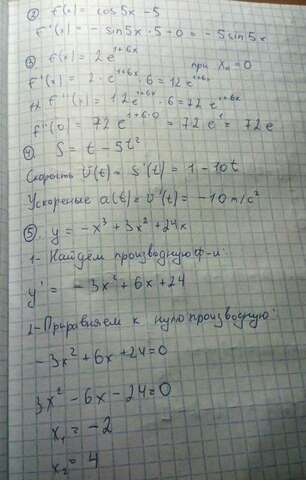 ② f(x) = cos5x - 5
f'(x) = - sin5x · 5 - 0 = - 5 sin5x
③ f(x) = 2e^(1+6x) при x₀ = 0
f'(x) = 2 · e^(1+6x) · 6 = 12 e^(1+6x)
f''(x) = 12 e^(1+6x) · 6 = 72 e^(1+6x)
f''(0) = 72 e^(1+6·0) = 72 e^1 = 72e
④ S = t - 5t²
Скорость V(t) = S'(t) = 1 - 10t
Ускорение a(t) = V'(t) = -10 м/с²
⑤ y = -x³ + 3x² + 24x
1 - Найдем производную ф-и:
y' = - 3x² + 6x + 24
2 - Приравняем к нулю производную:
- 3x² + 6x + 24 = 0
3x² - 6x - 24 = 0
x₁ = -2
x₂ = 4